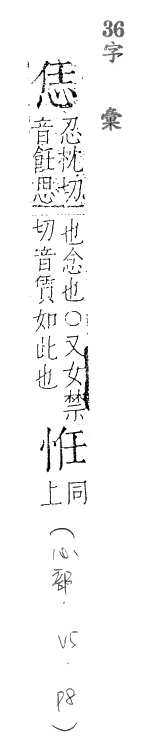 36字彙
恁
忍枕切
音飪思
也念也○又女禁
切音賃如此也
同
上
(心部. V5. P8)